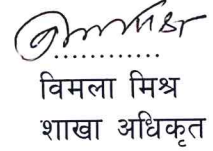 ............
विमला मिश्र
शाखा अधिकृत